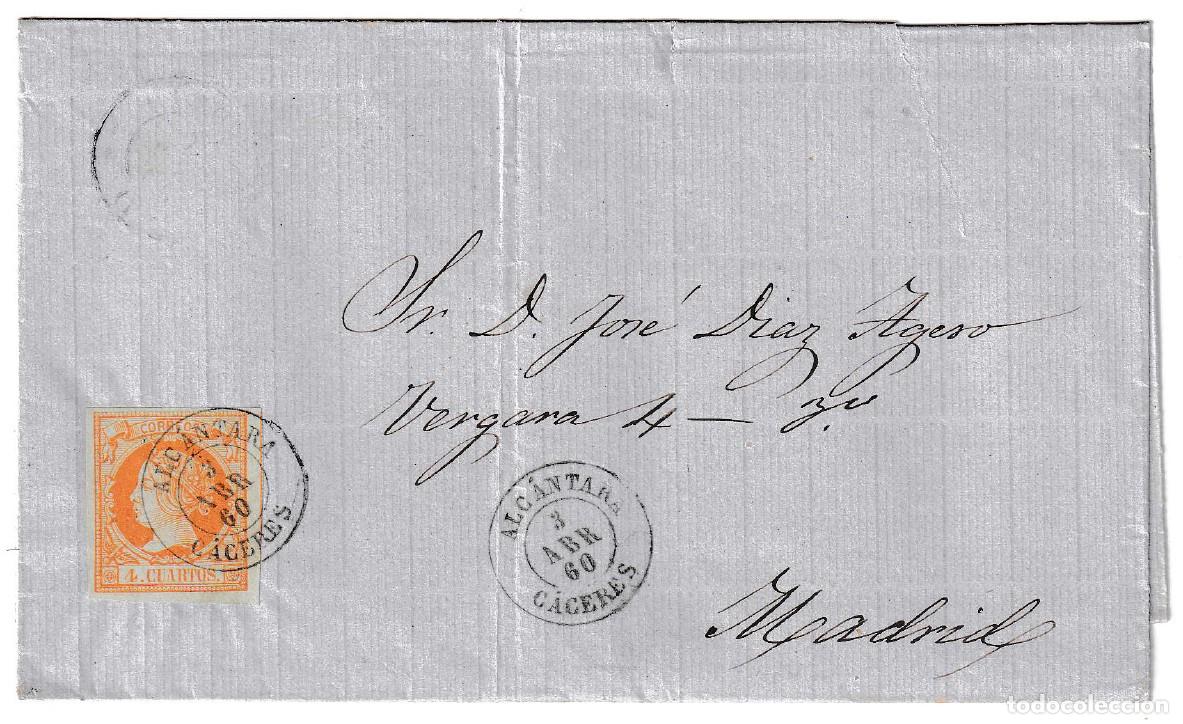 Sr. D. José Diaz Agero
Vergara 4 —
Madrid
CORREOS
4. CUARTOS.
ALCÁNTARA
3
ABR
60
CÁCERES
ALCÁNTARA
3
ABR
60
CÁCERES
todocoleccion